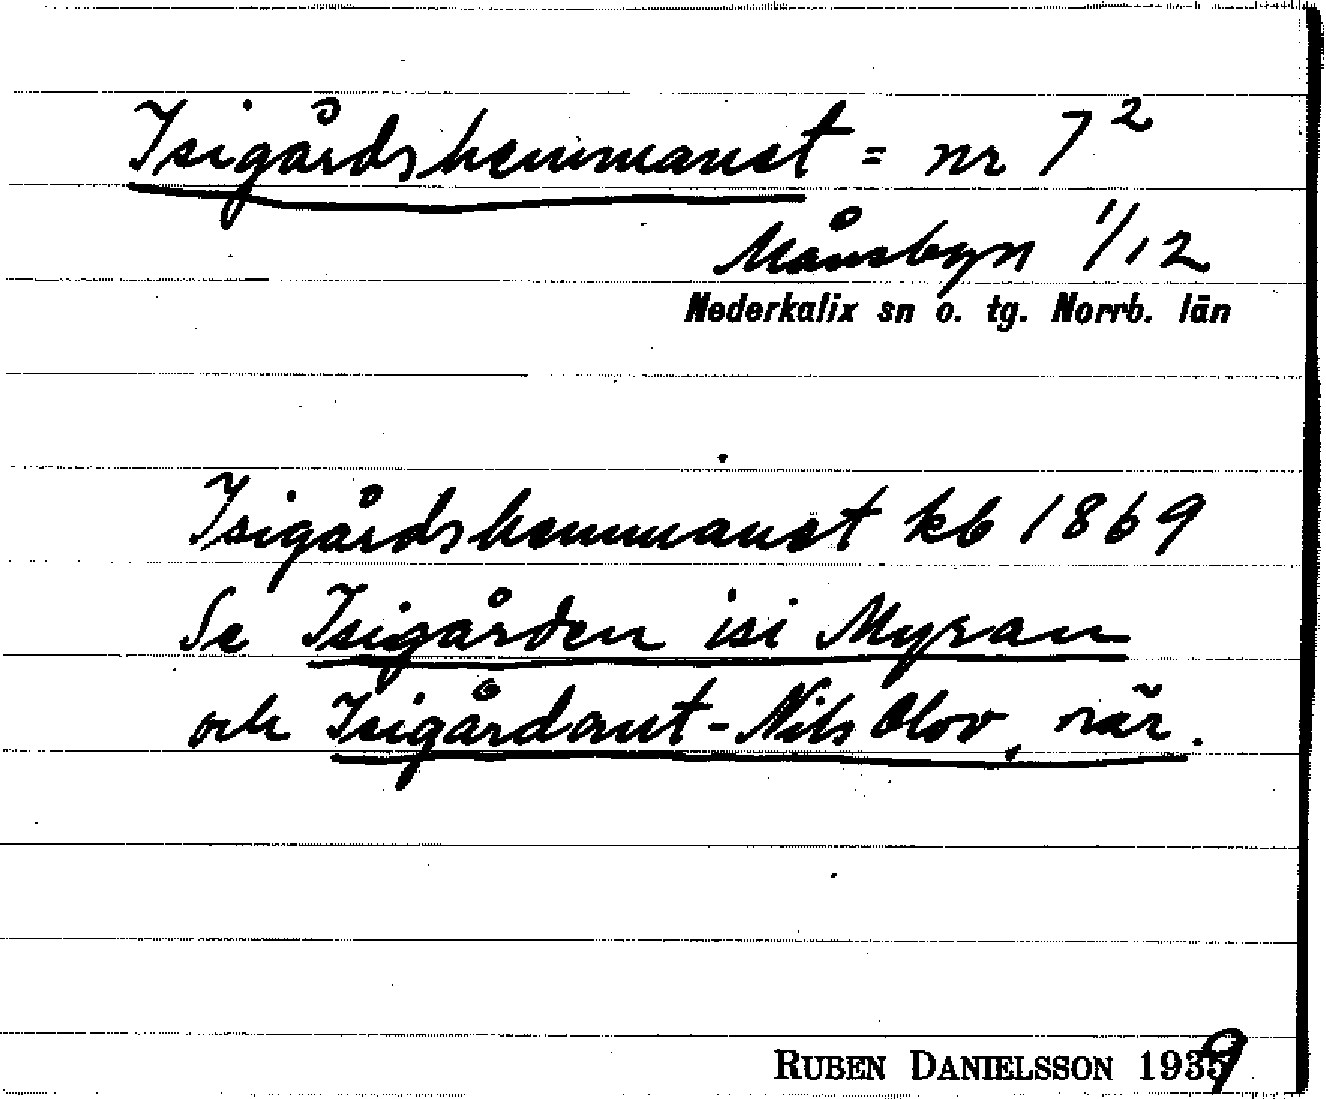 Isigårdshemmanet = nr 7²
Månsbyn 1/12
Nederkalix sn o. tg. Norrb. län
Isigårdshemmanet kb 1869
Se Isigården isi Myran
och Isigårdaut-Nils Olov, när.
RUBEN DANIELSSON 1939